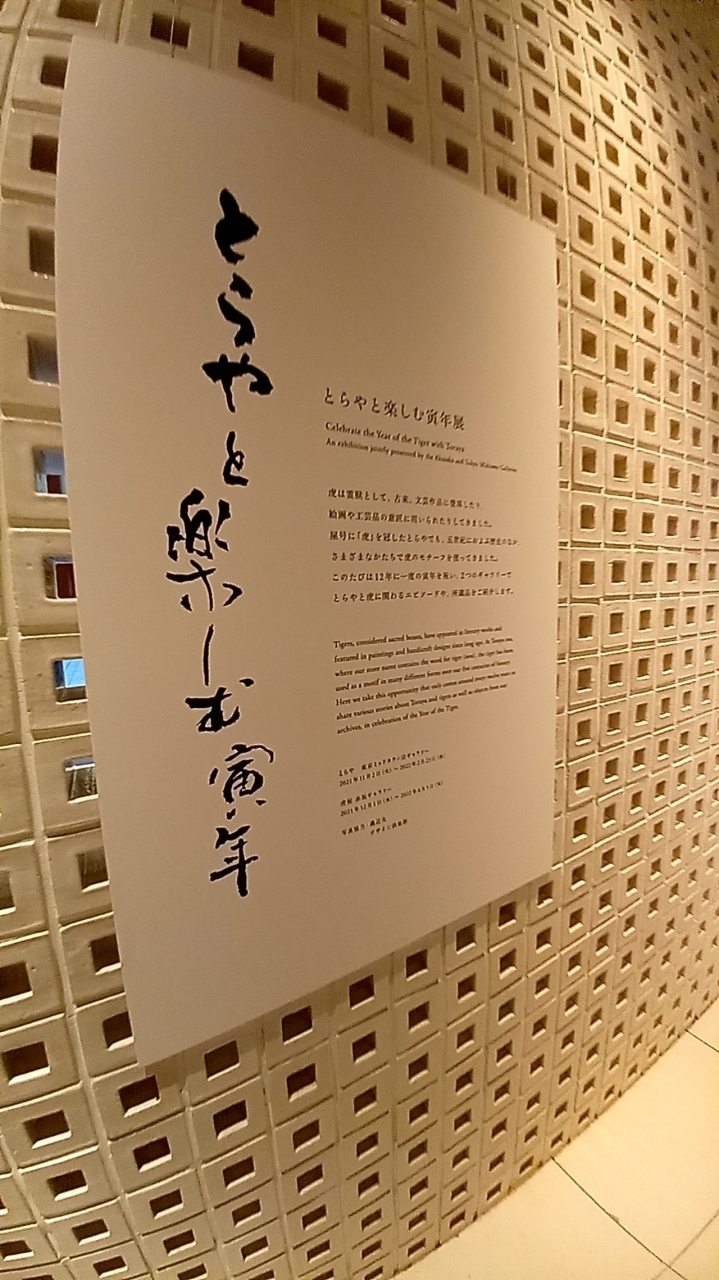 とらやと楽しむ寅年
とらやと楽しむ寅年展
Celebrate the Year of the Tiger with Toraya
An exhibition jointly presented by the Akasaka and Tokyo Midtown Galleries
虎は霊獣として、古来、文芸作品に登場したり、
絵画や工芸品の意匠に用いられたりしてきました。
屋号に「虎」を冠したとらやでも、五世紀におよぶ歴史のなか、
さまざまなかたちで虎のモチーフを使ってきました。
このたびは12年に一度の寅年を祝い、2つのギャラリーで
とらやと虎に関わるエピソードや、所蔵品をご紹介します。
Tigers, considered sacred beasts, have appeared in literary works and
featured in paintings and handicraft designs since long ago. At Toraya too,
where our store name contains the word for tiger (tora), the tiger has been
used as a motif in many different forms over our five centuries of history.
Here we take this opportunity that only comes around every twelve years to
share various stories about Toraya and tigers as well as objects from our
archives, in celebration of the Year of the Tiger.
とらや 東京ミッドタウン店ギャラリー
2021年11月2日(火)〜2022年2月23日(水)
虎屋 赤坂ギャラリー
2021年12月1日(水)〜2022年
写真協力: